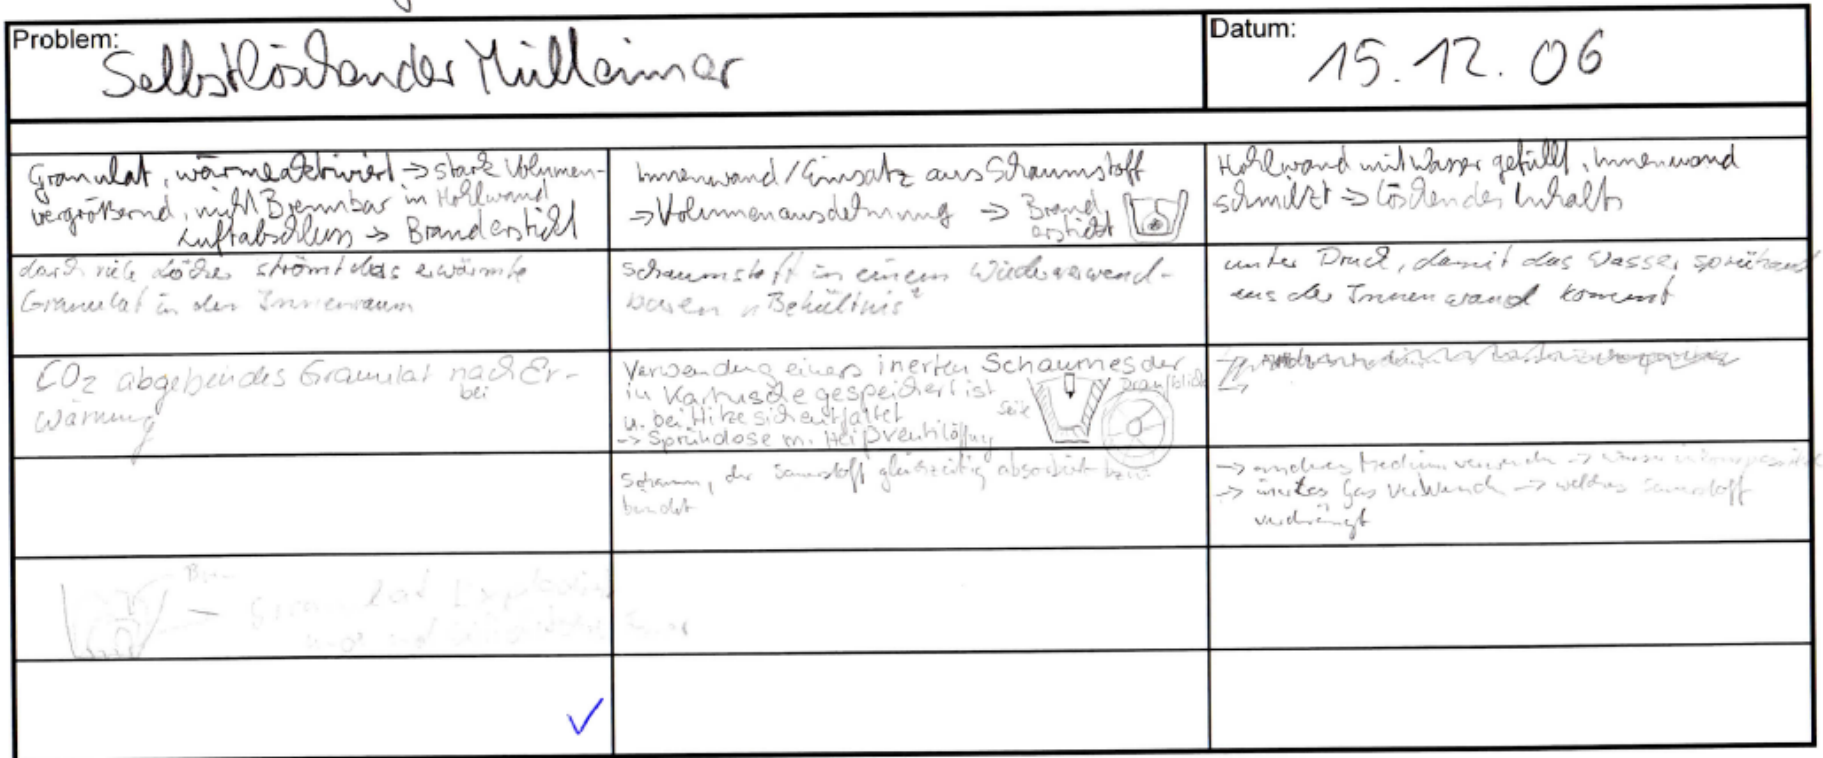 Problem:
Selbstlöschender Mülleimer
Datum:
15.12.06
Granulat, wärmeaktiviert → stark Volumen-
vergrößernd, nicht Brennbar in Hohlwand
Luftabschluss → Brand erstickt
Innenwand/Einsatz aus Schaumstoff
→ Volumenausdehnung → Brand
erstickt
Hohlwand mit Wasser gefüllt, Innenwand
schmilzt → Löschen des Inhalts
durch viele Löcher strömt das erwärmte
Granulat in den Innenraum
Schaumstoff in einem wiederverwend-
baren "Behältnis"
unter Druck, damit das Wasser sprühend
aus der Innenwand kommt
CO2 abgebendes Granulat nach Er-
bei
wärmung
Verwendung eines inerten Schaumes der
in Kartusche gespeichert ist
u. bei Hitze sich entfaltet
→ Sprühdose m. Heißventilöffng
Seite
Draufblick
Schaum, der Sauerstoff gleichzeitig absorbiert bzw.
bindet
→ anderes Medium verwenden → Wasser inkompressibel
→ inertes Gas verwenden → welches Sauerstoff
verdrängt
Granulat Explodiert